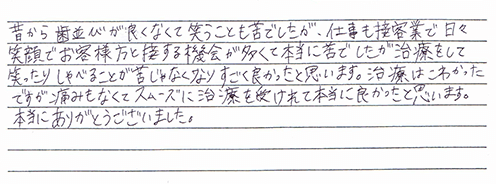 昔から歯並びが良くなくて笑うことも苦でしたが、仕事も接客業で日々
笑顔でお客様方と接する機会が多くて本当に苦でしたが治療をして
笑ったりしゃべることが苦じゃなくなりすごく良かったと思います。治療はこわかった
ですが痛みもなくてスムーズに治療を受けれて本当に良かったと思います。
本当にありがとうございました。